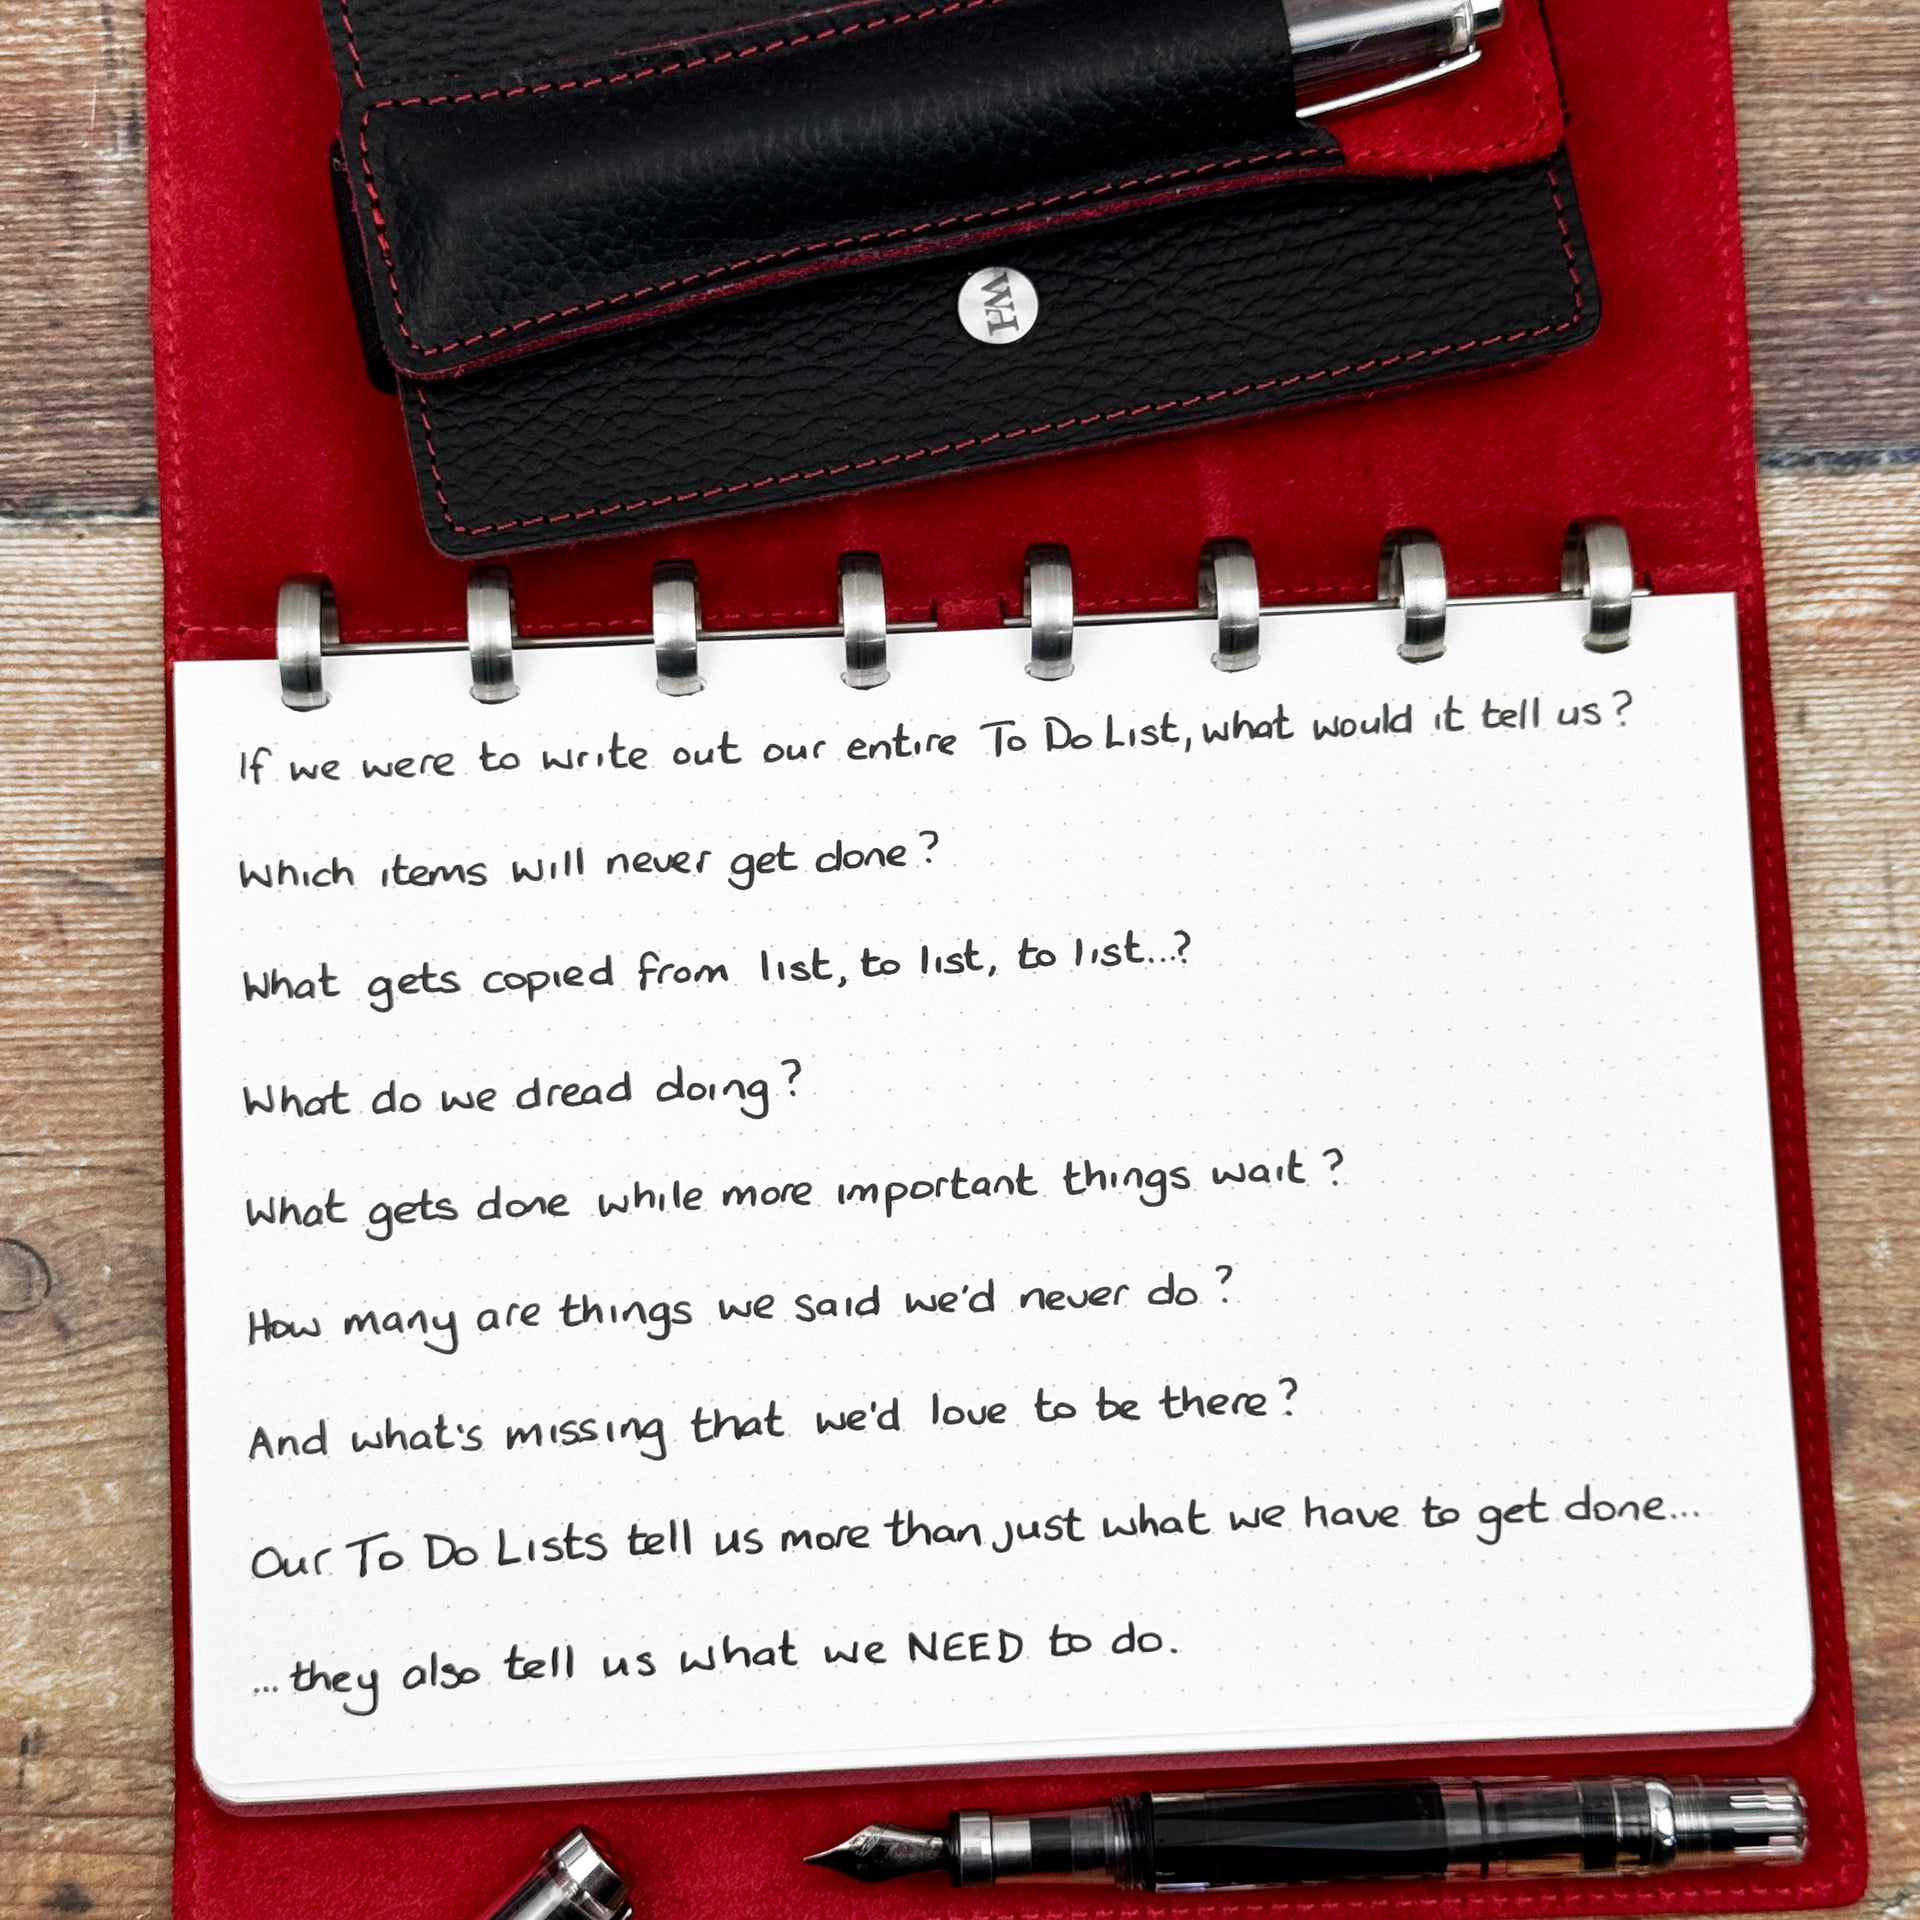 WH
If we were to write out our entire To Do List, what would it tell us?
Which items will never get done?
What gets copied from list, to list, to list...?
What do we dread doing?
What gets done while more important things wait?
How many are things we said we'd never do?
And what's missing that we'd love to be there?
Our To Do Lists tell us more than just what we have to get done...
...they also tell us what we NEED to do.